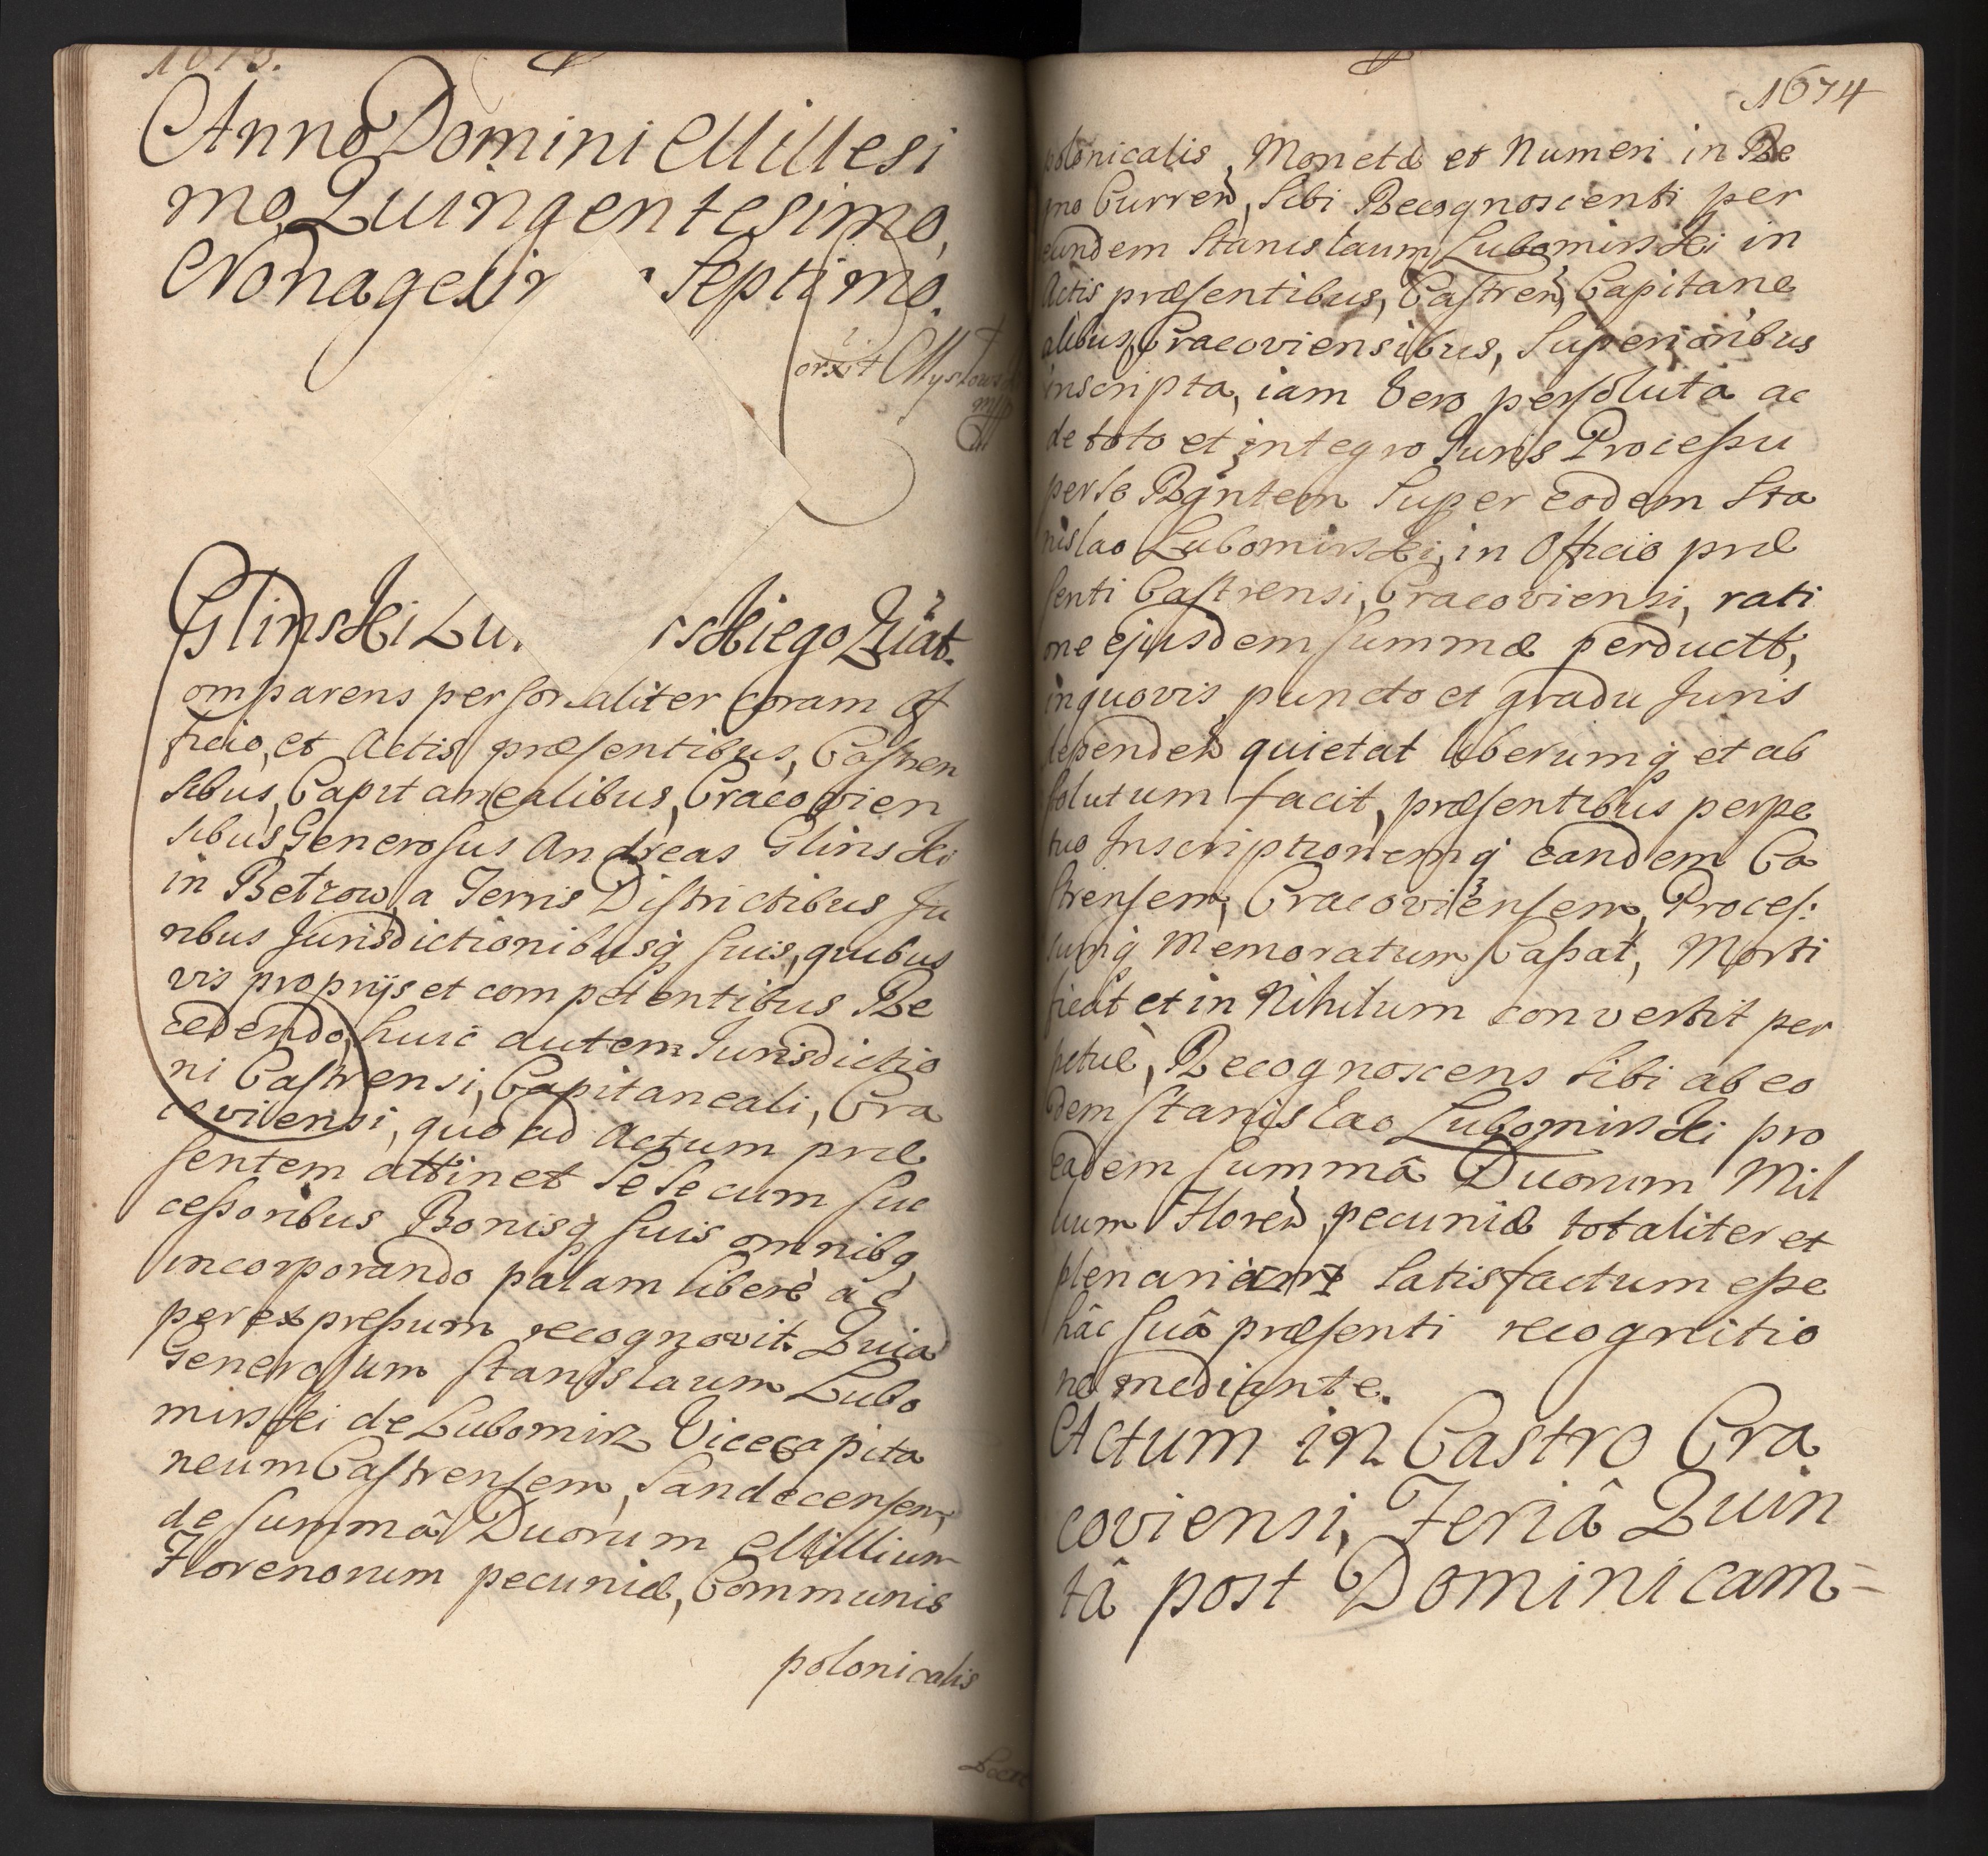 1673.
Anno Domini Millesi
mo, Quingentesimo,
Nonagesi Septimo.
Glinski Lu skiego Quiat.
omparens personaliter coram of
ficio, et Actis præsentibus, Castren
sibus, Capitanealibus, Cracovien
sibus Generosus Andreas Glinski
in Betzow, a Terris Districtibus Ju
ribus Jurisdictionibusq́ suis, quibus
vis proprijs et competentibus Re
cedendo, huic autem Jurisdictio
ni Castrensi, Capitaneali, Cra
coviensi, quo ad Actum præ
sentem attinet Se Se cum suc
cessoribus Bonisq́ suis omnibq́
incorporando palam liberè àc
per expressum recognovit. Quia
Generosum Stanislaum Lubo
mirski de Lubomirz Vicecapita
neum Castrensem, Sandecensem,
de summâ Duorum Millium
Florenorum pecuniæ, Communis
polonicalis
1674
polonicalis, Monetæ et Numeri in Re
gno Curren, Sibi Recognoscenti per
eundem Stanislaum Lubomirski in
Actis præsentibus, Castren, Capitane
alibus, Cracoviensibus, Superioribus
inscripta, iam vero persoluta ac
de toto et integro Juris Processu
per se Rgntem Super eodem Sta
nislao Lubomirski, in Officio præ
senti Castrensi, Cracoviensi, rati
one ejusdem summæ perductt,
in quovis puncto et gradu Juris
dependen quietat liberumq́ et ab
solutum facit, præsentibus perpe
tuo Inscriptionemq́ eandem Ca
strensem, Cracoviensem, Proces:
sumq́ Memoratum Cassat, Morti
ficat et in Nihilum convertit per
petuè, Recognoscens Sibi ab eo
dem Stanislao Lubomirski pro
eadem summâ Duorum Mil
lium Floren pecuniæ totaliter et
plenariam Satisfactum esse
hâc suâ præsenti recognitio
ne mediante.
Actum in Castro Cra
coviensi, Feriâ Quin
tâ post Dominicam=